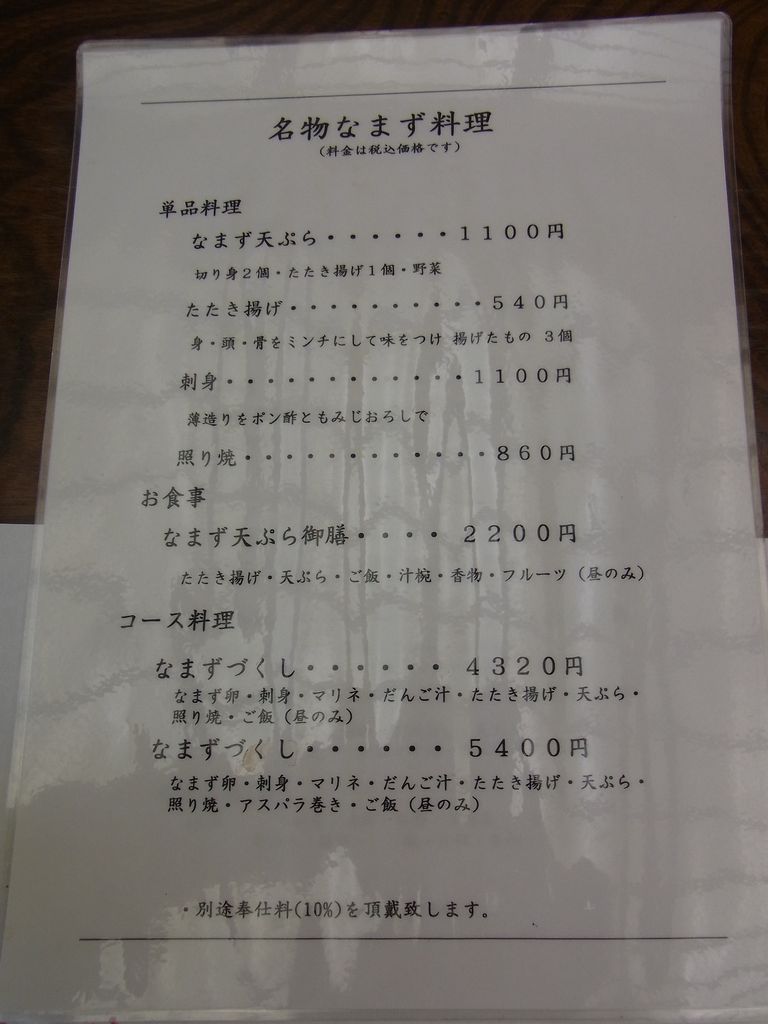 名物なまず料理
(料金は税込価格です)
単品料理
なまず天ぷら・・・・・・1100円
切り身2個・たたき揚げ1個・野菜
たたき揚げ・・・・・・・・・・540円
身・頭・骨をミンチにして味をつけ 揚げたもの 3個
刺身・・・・・・・・・・・・1100円
薄造りをポン酢ともみじおろしで
照り焼・・・・・・・・・・・・860円
お食事
なまず天ぷら御膳・・・・ 2200円
たたき揚げ・天ぷら・ご飯・汁椀・香物・フルーツ(昼のみ)
コース料理
なまずづくし・・・・・・ 4320円
なまず卵・刺身・マリネ・だんご汁・たたき揚げ・天ぷら・
照り焼・ご飯(昼のみ)
なまずづくし・・・・・・ 5400円
なまず卵・刺身・マリネ・だんご汁・たたき揚げ・天ぷら・
照り焼・アスパラ巻き・ご飯(昼のみ)
・別途奉仕料(10%)を頂戴致します。